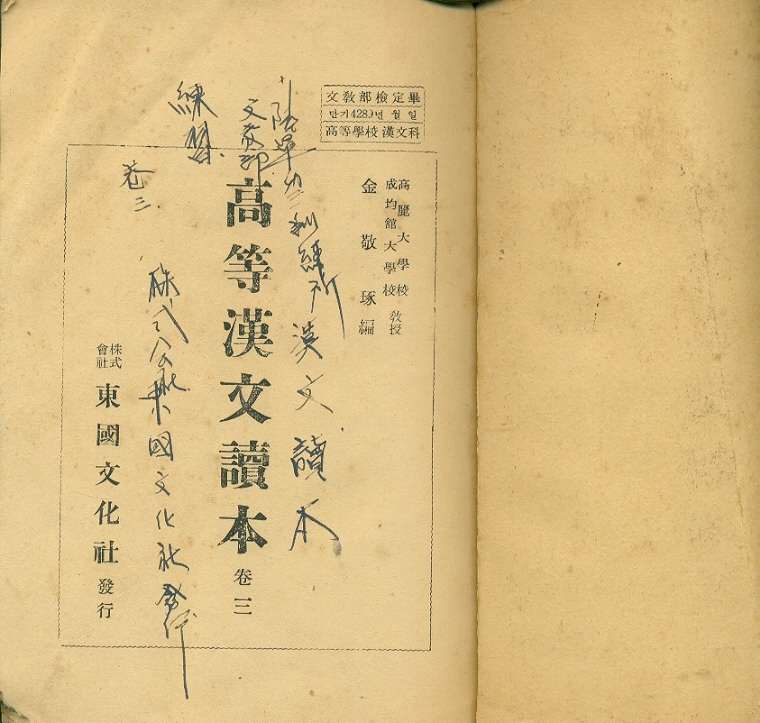 文教部檢定畢
단기4289년 월 일
高等學校 漢文科
高麗大學校
成均館大學校 敎授
金敬琢 編
漢文讀本
文敎部
高等漢文讀本 卷三
練習
株式公社東國文化社發行
卷三
株式會社 東國文化社 發行